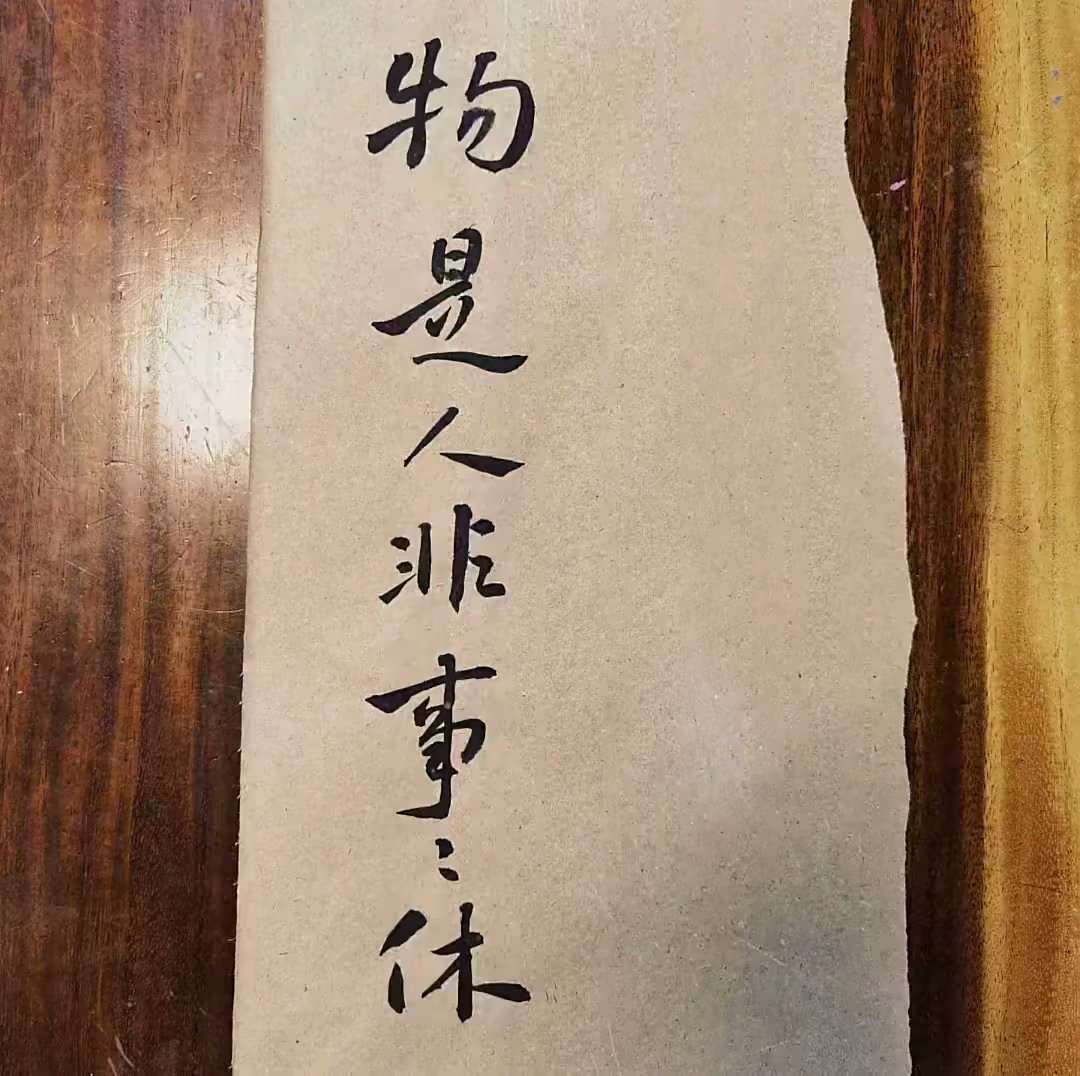 物是人非事〻休